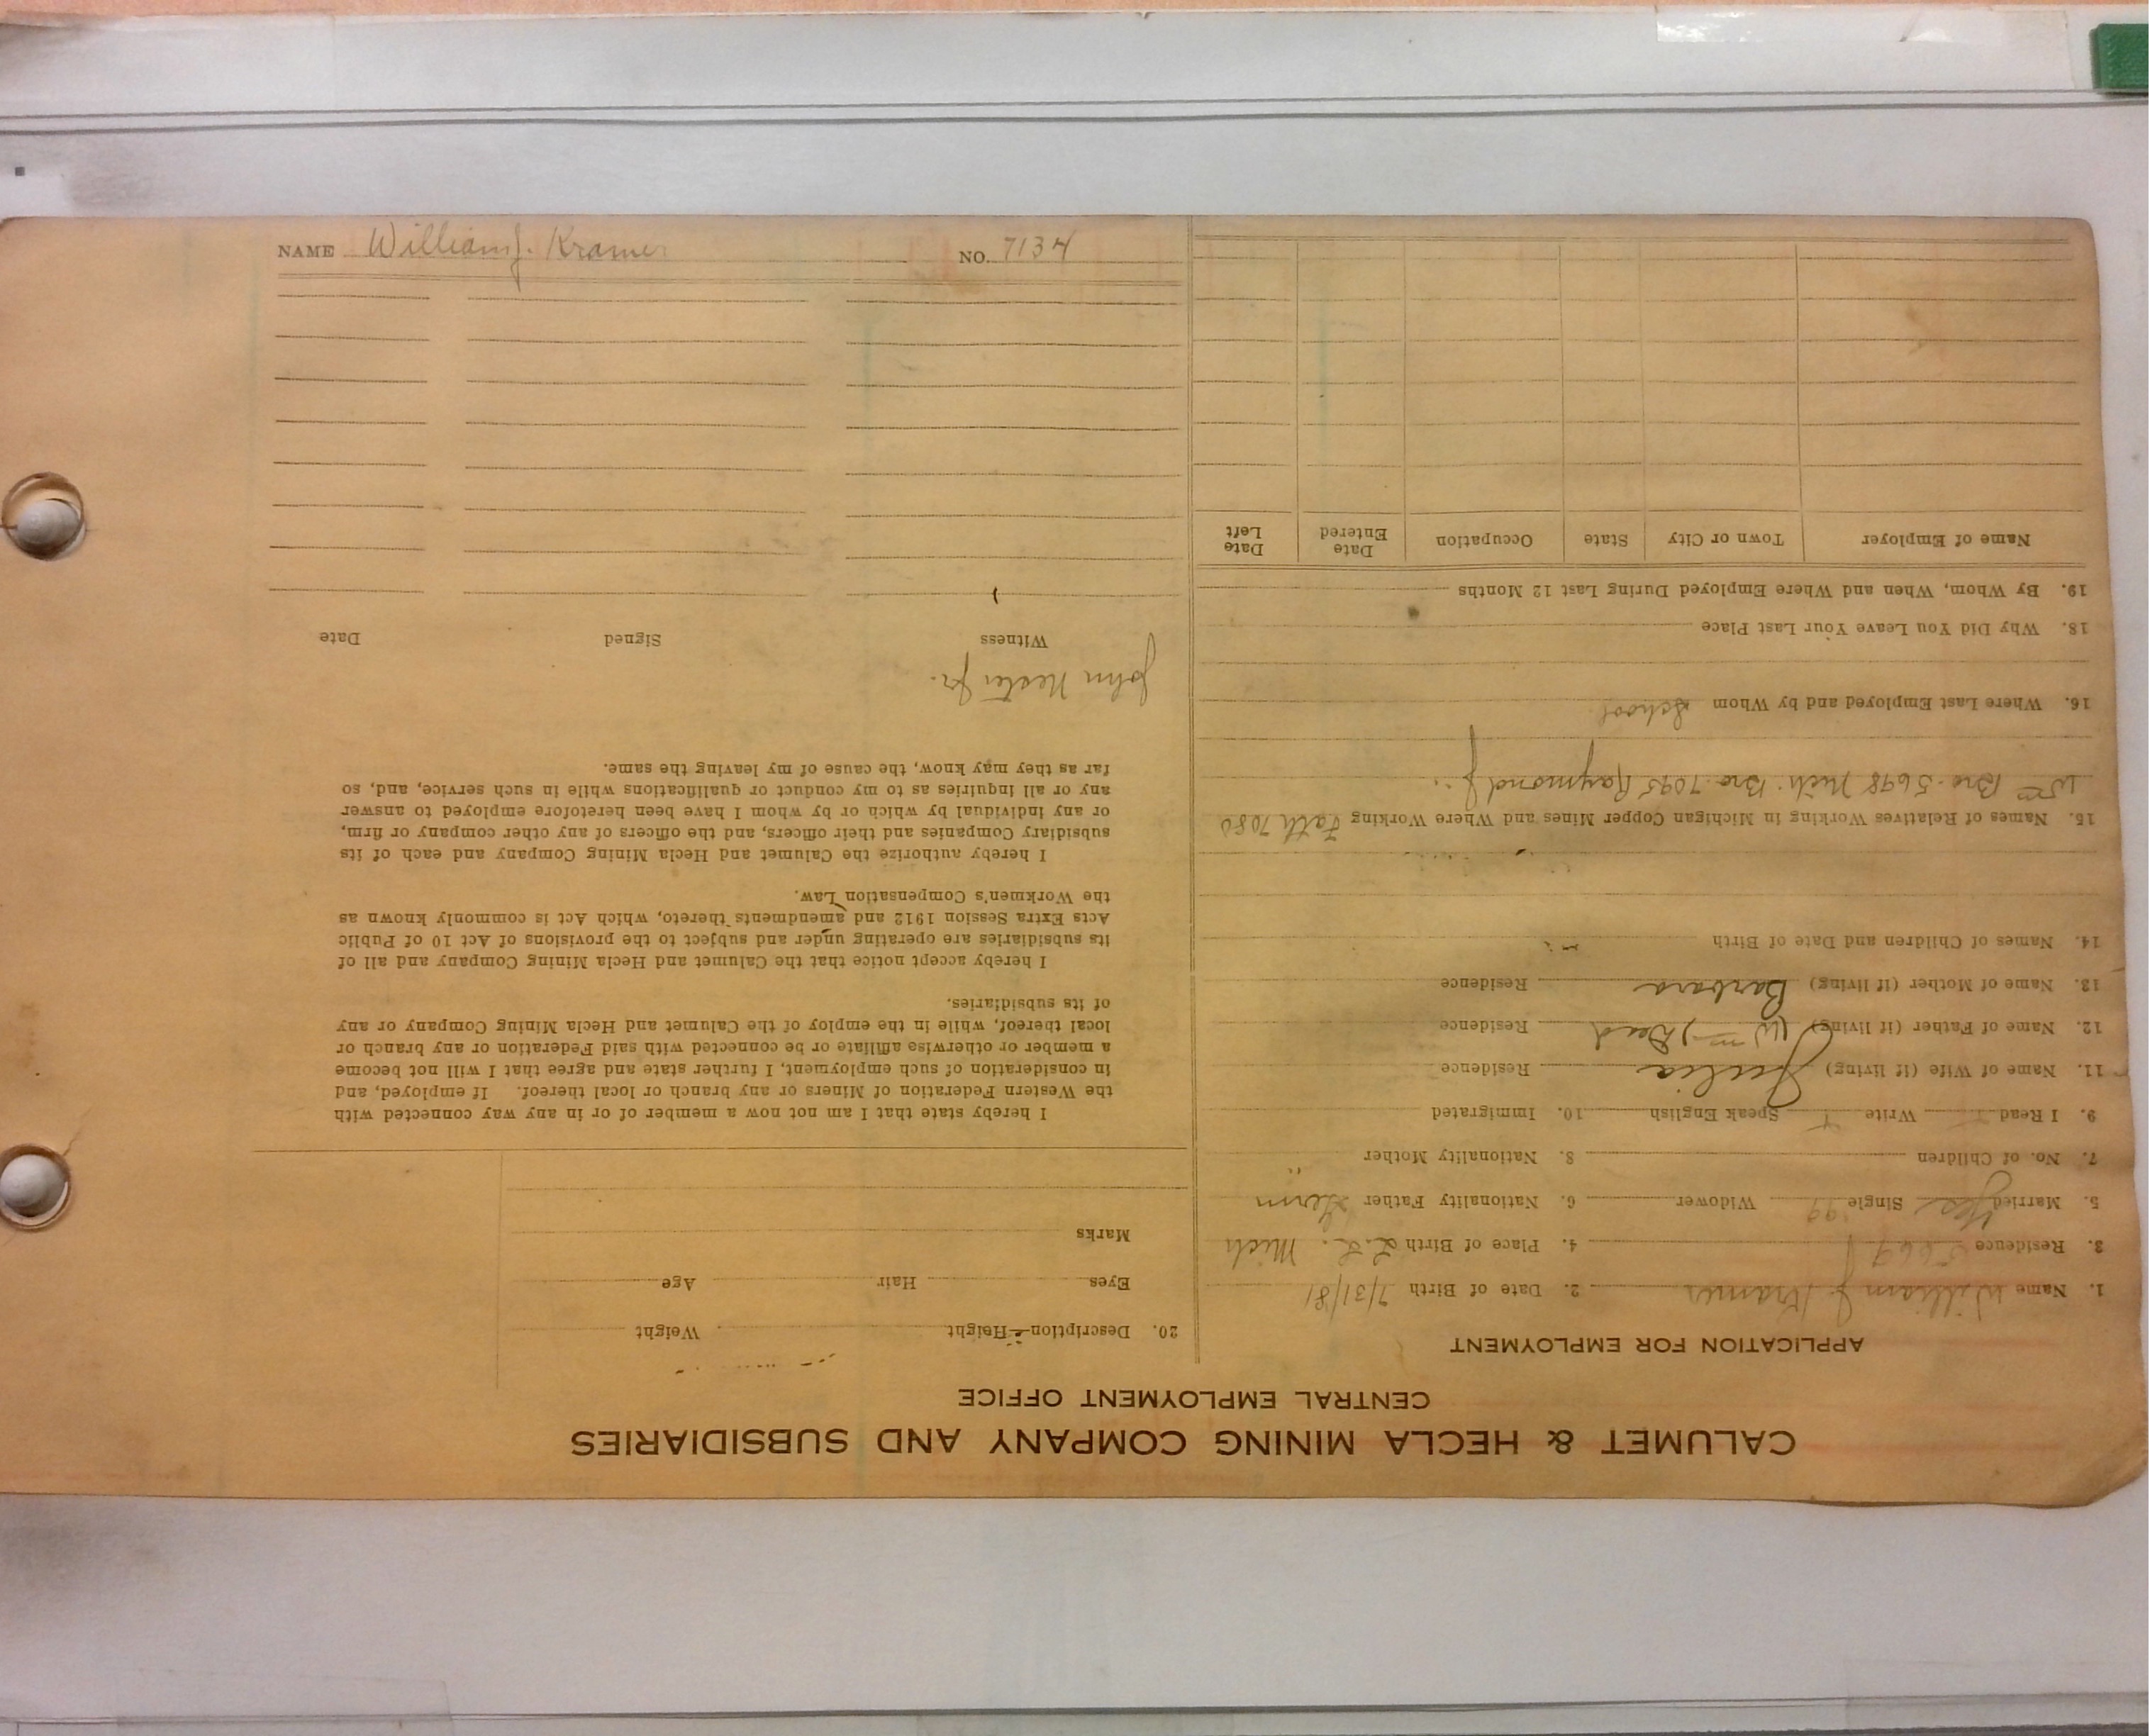 CALUMET & HECLA MINING COMPANY AND SUBSIDIARIES
CENTRAL EMPLOYMENT OFFICE
APPLICATION FOR EMPLOYMENT
1. Name William J Kramer 2. Date of Birth 7/31/81
3. Residence 4. Place of Birth L.L. Mich
5. Married Yes Single 99 Widower 6. Nationality Father Germ
7. No. of Children 8. Nationality Mother "
9. I Read Write Speak English 10. Immigrated
11. Name of Wife (if living) Julia Residence
12. Name of Father (if living) (Wm) Dead Residence
13. Name of Mother (if living) Barbara Residence
14. Names of Children and Date of Birth
15. Names of Relatives Working in Michigan Copper Mines and Where Working Fath 7080
Wm Bro. 5698 Nich. Bro. 7095 Raymond J.
16. Where Last Employed and by Whom School
18. Why Did You Leave Your Last Place
19. By Whom, When and Where Employed During Last 12 Months
Name of Employer Town or City State Occupation Date Entered Date Left
20. Description—Height Weight
Eyes Hair Age
Marks
I hereby state that I am not now a member of or in any way connected with
the Western Federation of Miners or any branch or local thereof. If employed, and
in consideration of such employment, I further state and agree that I will not become
a member or otherwise affiliate or be connected with said Federation or any branch or
local thereof, while in the employ of the Calumet and Hecla Mining Company or any
of its subsidiaries.
I hereby accept notice that the Calumet and Hecla Mining Company and all of
its subsidiaries are operating under and subject to the provisions of Act 10 of Public
Acts Extra Session 1912 and amendments thereto, which Act is commonly known as
the Workmen's Compensation Law.
I hereby authorize the Calumet and Hecla Mining Company and each of its
subsidiary Companies and their officers, and the officers of any other company or firm,
or any individual by which or by whom I have been heretofore employed to answer
any or all inquiries as to my conduct or qualifications while in such service, and, so
far as they may know, the cause of my leaving the same.
John Jr.
Witness Signed Date
NAME William J. Kramer NO. 7134